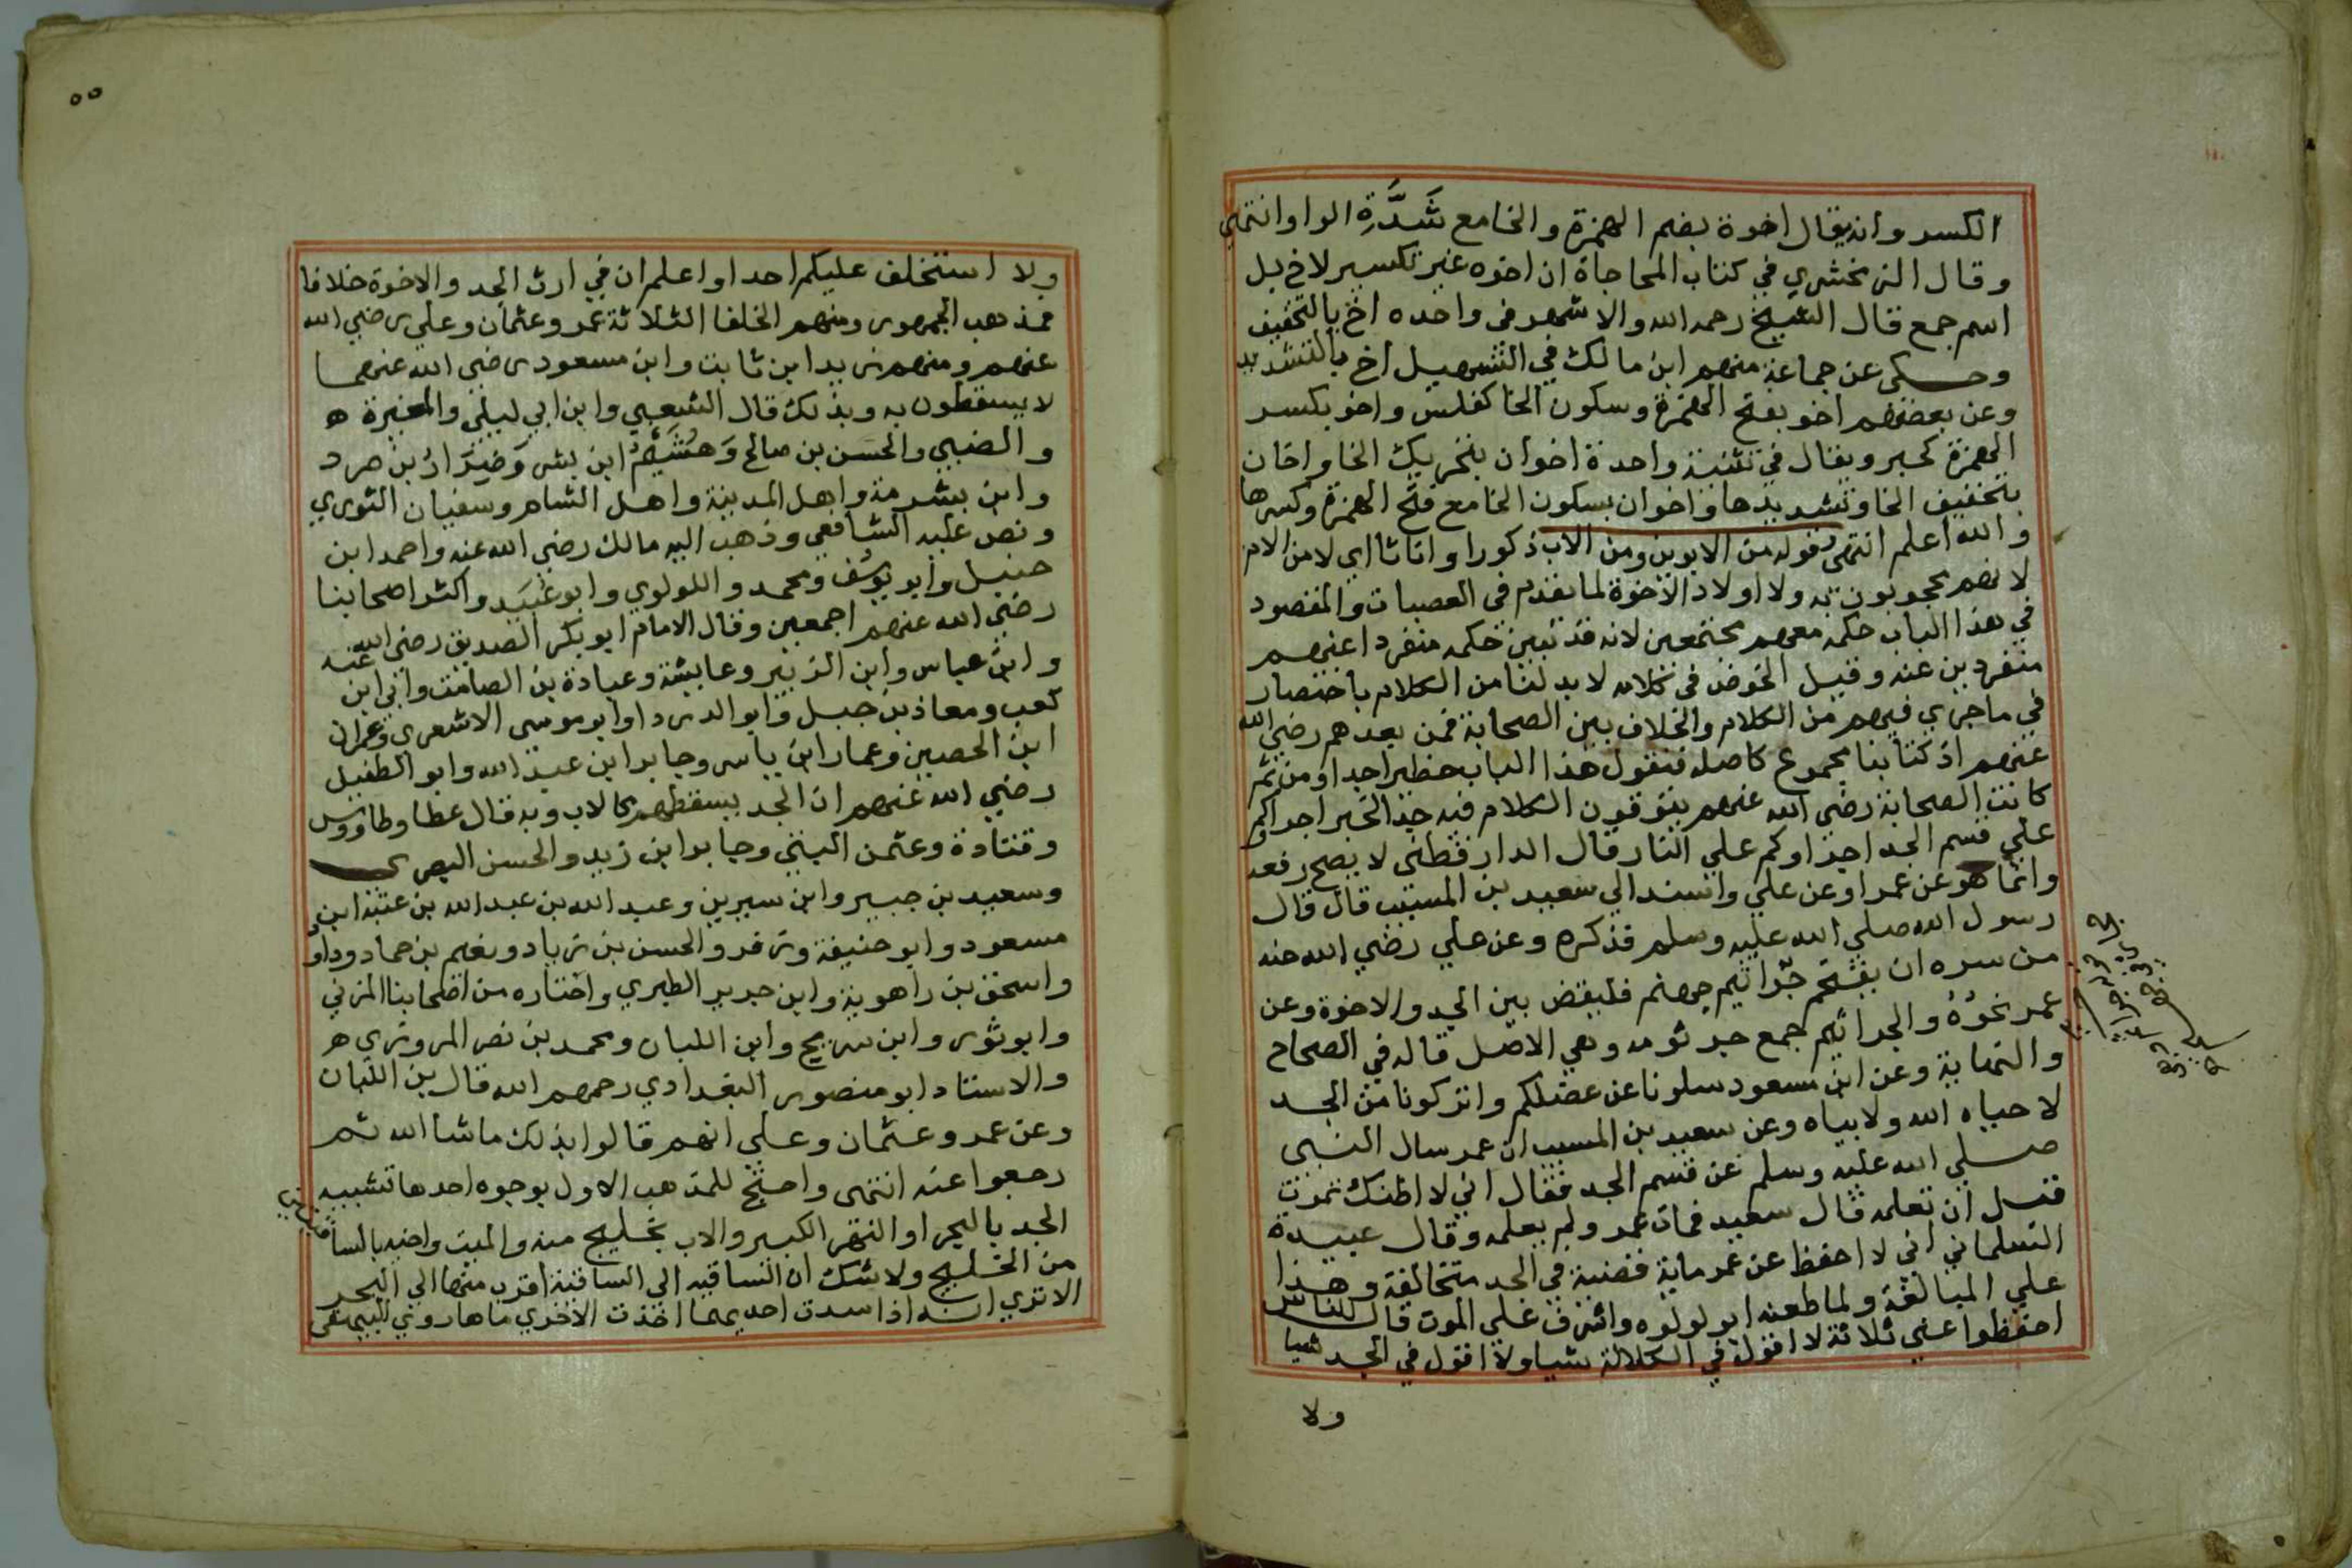 الكسر وانه يقال اخوة بضم الهمزة والخا مع شَدَّةِ الواو انتهى
وقال الزمخشري في كتاب المحاجاة ان اخوه غير تكسير لاخ بل
اسم جمع قال الشيخ رحمه الله والاشهر في واحده اخ بالتخفيف
وحكى عن جماعة منهم ابن مالك في التسهيل اخ بالتشديد
وعن بعضهم اخو بفتح الهمزة وسكون الخا كفلس واخو بكسر
الهمزة كحبر ويقال في تثنية واحدة اخوان بتحريك الخا واخان
بتخفيف الخا وتشديدها واخوان بسكون الخا مع فتح الهمزة وكسرها
والله اعلم انتهى قوله من الابوين ومن الاب ذكورا واناثا اي لا من الام
لانهم محجوبون به ولا اولاد الاخوة لما تقدم في العصبات والمقصود
في هذا الباب حكمه معهم مجتمعين لانه قد تبين حكمه منفردا عنهم
منفردين عنه وقبل الخوض في كلامه لا بد لنا من الكلام باختصار
في ما جرى فيهم من الكلام والخلاف بين الصحابة فمن بعدهم رضي الله
عنهم اذ كتابنا مجموع كاصله فنقول هذا الباب خطير جدا ومن ثم
كانت الصحابة رضي الله عنهم يتوقون الكلام فيه جدا لخبر اجراكم
علي قسم الجد اجراوكم علي النار قال الدارقطني لا يصح رفعه
وانما هو عن عمر او عن علي واسند الي سعيد بن المسيب قال قال
رسول الله صلي الله عليه وسلم فذكره وعن علي رضي الله عنه
من سره ان يقتحم جراثيم جهنم فليقض بين الجد والاخوة وعن
عمر نحوُهُ والجراثيم جمع جرثومه وهي الاصل قاله في الصحاح
والنهاية وعن ابن مسعود سلونا عن عضلكم واتركونا من الجد
لا حياه الله ولا بياه وعن سعيد بن المسيب ان عمر سال النبي
صلي الله عليه وسلم عن قسم الجد فقال اني لا اظنك تموت
قبل ان تعلمه قال سعيد فمات عمر ولم يعلمه وقال عبيدة
السلماني اني لا احفظ عن عمر ماية قضية في الجد متخالفة وهذا
علي المبالغة ولما طعنه ابو لولوه واشرف علي الموت قال للناس
احفظوا عني ثلاثة لا اقول في الكلالة شيا ولا اقول في الجد شيا
ولا
٥٥
ولا استخلف عليكم احدا واعلم ان في ارث الجد والاخوة خلافا
فمذهب الجمهور ومنهم الخلفا الثلاثة عمر وعثمان وعلي رضي الله
عنهم ومنهم زيد ابن ثابت وابن مسعود رضي الله عنهما
لا يسقطون به وبذلك قال الشعبي وابن ابي ليلي والمغيرة
والضبي والحَسَن بن صالح وَهُشَيْمُ ابن بشر وَضِرَارُ بن صرد
وابن شبرمة واهل المدينة واهل الشام وسفيان الثوري
ونص عليه الشافعي وذهب اليه مالك رضي الله عنه واحمد ابن
حنبل وابو يوسُف ومحمد واللولوي وابو عُبَيَد واكثر اصحابنا
رضي الله عنهم اجمعين وقال الامام ابو بكر الصديق رضي الله عنه
وابن عباس وابن الزبير وعايشة وعبادة بن الصامت وابي ابن
كعب ومعاذ بن جبل وابو الدردا وابو موسى الاشعري وعمران
ابن الحصين وعمار ابن ياسر وجابر ابن عبد الله وابو الطفيل
رضي الله عنهم ان الجد يسقطهم كالاب وبه قال عطا وطاووس
وقتادة وعثمن البتي وجابر ابن زيد والحسن البصري
وسعيد بن جبير وابن سيرين وعبد الله بن عبد الله بن عتبة ابن
مسعود وابو حنيفة وزفر والحسن بن زياد ونعيم بن حماد وداود
واسحق بن راهوية وابن جرير الطبري واختاره من اصحابنا المزني
وابو ثور وابن سريج وابن اللبان ومحمد بن نصر المروزي
والاستاد ابو منصور البغدادي رحمهم الله قال بن اللبان
وعن عمر وعثمان وعلي انهم قالوا بذلك ما شا الله ثم
رجعوا عنه انتهى واحتج للمذهب الاول بوجوه احدها تشبيه
الجد بالبحر او النهر الكبير والاب بخليج منه والميت واخيه بالساقيتين
من الخليج ولا شك ان الساقيه الى الساقية اقرب منها الي البحر
الا تري انه اذا سدت احديهما اخذت الاخري ماها روي البيهقي